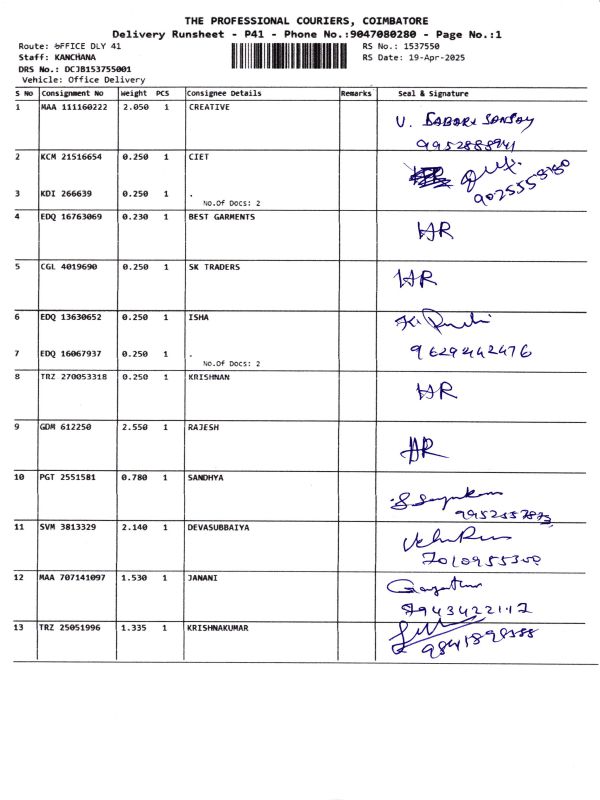 THE PROFESSIONAL COURIERS, COIMBATORE
Delivery Runsheet - P41 - Phone No.:9047080280 - Page No.:1
Route: OFFICE DLY 41 RS No.: 1537550
Staff: KANCHANA RS Date: 19-Apr-2025
DRS No.: DCJB153755001
Vehicle: Office Delivery
S No Consignment No Weight PCS Consignee Details Remarks Seal & Signature
1 MAA 111160222 2.050 1 CREATIVE
2 KCM 21516654 0.250 1 CIET
3 KDI 266639 0.250 1 .
No.Of Docs: 2
4 EDQ 16763069 0.230 1 BEST GARMENTS HR
5 CGL 4019690 0.250 1 SK TRADERS HR
6 EDQ 13630652 0.250 1 ISHA
7 EDQ 16067937 0.250 1 . 9629442476
No.Of Docs: 2
8 TRZ 270053318 0.250 1 KRISHNAN HR
9 GDM 612250 2.550 1 RAJESH HR
10 PGT 2551581 0.780 1 SANDHYA
11 SVM 3813329 2.140 1 DEVASUBBAIYA
7010955300
12 MAA 707141097 1.530 1 JANANI
13 TRZ 25051996 1.335 1 KRISHNAKUMAR